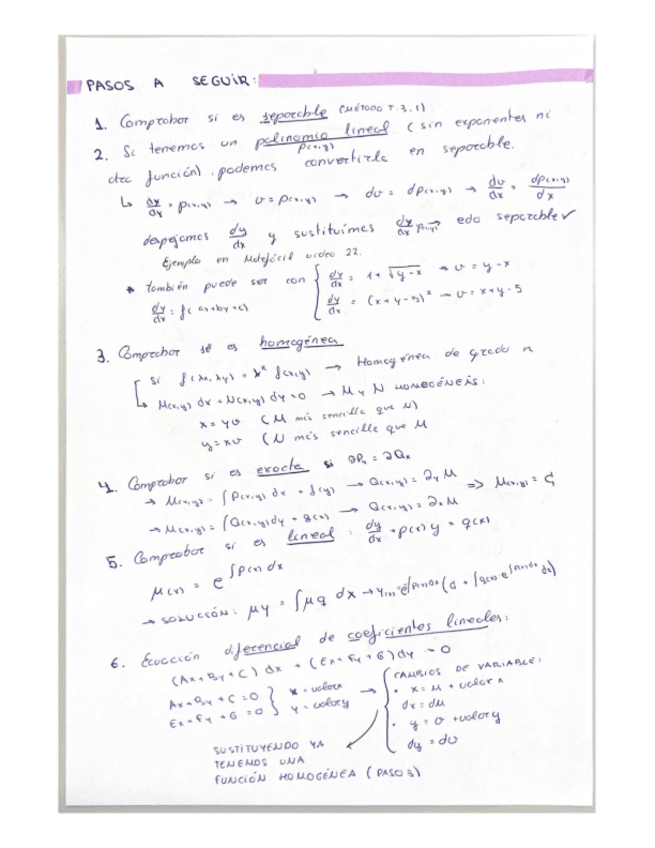 PASOS A SEGUIR:
1. Comprobar si es separable (MÉTODO T.3.1)
2. Si tenemos un polinomio lineal (sin exponentes ni
P(x,y)
otra función), podemos convertirla en separable.
↳ dy/dx = p(x,y) → v = p(x,y) → dv = dp(x,y) → dv/dx = dp(x,y)/dx
despejamos dy/dx y sustituimos dy/dx = p(x,y) edo separable ✓
Ejemplo en Matefácil video 22.
* también puede ser con { dy/dx = 1 + √(y-x) → v = y-x
dy/dx = f(ax+by+c) dy/dx = (x+y-5)² → v = x+y-5
3. Comprobar si es homogénea
Si f(λx, λy) = λⁿ f(x,y) → Homogénea de grado n
↳ M(x,y) dx + N(x,y) dy = 0 → M y N HOMOGÉNEAS:
x = yv (M más sencilla que N)
y = xv (N más sencilla que M
4. Comprobar si es exacta si ∂Py = ∂Qx
→ M(x,y) = ∫P(x,y) dx + f(y) → Q(x,y) = ∂y M
→ M(x,y) = ∫Q(x,y) dy + g(x) → Q(x,y) = ∂x M => M(x,y) = C₁
5. Comprobar si es lineal: dy/dx + p(x) y = q(x)
μ(x) = e^∫P(x) dx
→ SOLUCIÓN: μy = ∫μq dx
6. Ecuación diferencial de coeficientes lineales:
(Ax + By + C) dx + (Ex + Fy + G) dy = 0
Ax + By + C = 0 } x = valorx → { CAMBIOS DE VARIABLE:
Ex + Fy + G = 0 } y = valory • x = μ + valor x
dx = dμ
• y = v + valor y
dy = dv
SUSTITUYENDO YA
TENEMOS UNA
FUNCIÓN HOMOGÉNEA (PASO 3)